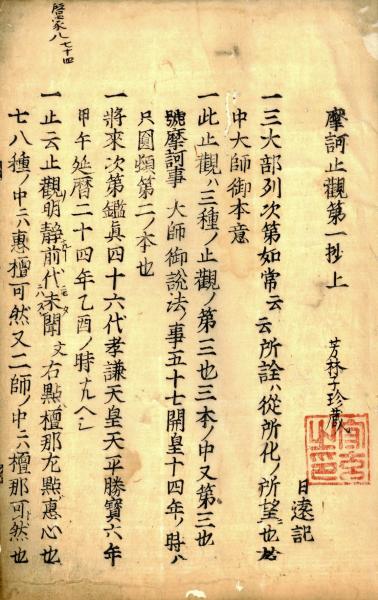 摩訶止觀第一抄上
芳林子珍藏
日遠記
一三大部列次第如常云云所詮ハ從所化ノ所望也
中大師御本意
一此止觀ハ三種ノ止觀ノ第三也三本ノ中又第三也
號摩訶事 大師御說法ノ事五十七開皇十四年ノ時ハ
只圓頓第二ノ本也
一將來次第鑑真四十六代孝謙天皇天平勝寶六年
甲午延曆二十四年乙酉ノ時
一止云止觀明靜前代未聞文右點ハ檀那左點ハ惠心也
七八種ノ中ニハ惠檀可然又二師ノ中ニハ檀那可然也